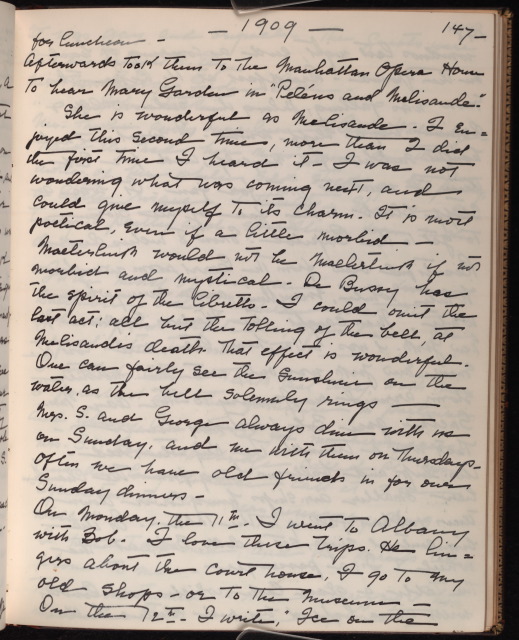 — 1909 — 147—
for luncheon —
Afterwards took them to the Manhattan Opera House
to hear Mary Garden in "Peléas and Melisande."
She is wonderful as Melisande. I En=
joyed this second time, more than I did
the first time I heard it — I was not
wondering what was coming next, and
could give myself to its charm. It is most
poetical, even if a little morbid —
Maeterlink would not be Maeterlink if not
morbid and mystical. De Bussy has
the spirit of the libretto. I could omit the
last act; all but the tolling of the bell, at
Melisandes death. That effect is wonderful.
One can fairly see the sunshine on the
water, as the bell solemnly rings —
Mrs. S. and George always dine with us
on Sunday, and we with them on Thursdays—
often we have old friends in for our
Sunday dinners —
On Monday, the 11th. I went to Albany
with Bob. I love these trips. He lin=
gers about the court house, I go to my
old shops — or to the Museum —
On the 12th. I write, "Ice on the